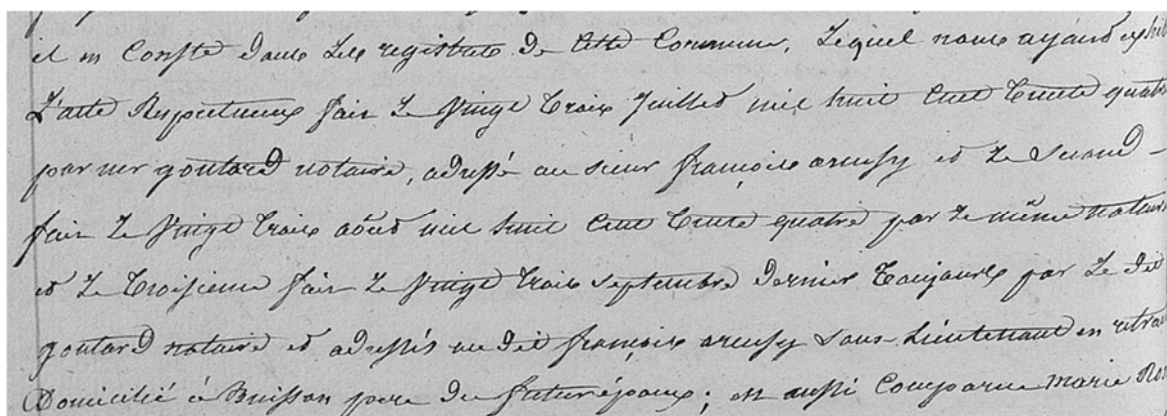 et en Conste dans Les registres de Cette Commune, Lequel nous ayand exhib
L'acte Respectueux fait Le Vingt trois Juillet mil huit Cent trente quatre
par mr goutard notaire, adressé au sieur françois et Le Second -
fait Le Vingt trois août mil huit Cent trente quatre par Le même notaire
et Le troisième fait Le Vingt trois Septembre dernier toujours par Le dit
goutard notaire et adressés au dit françois Sous-Lieutenant en retrai
Domicilié à Buisson père du futur époux; est aussi Comparue marie Ros